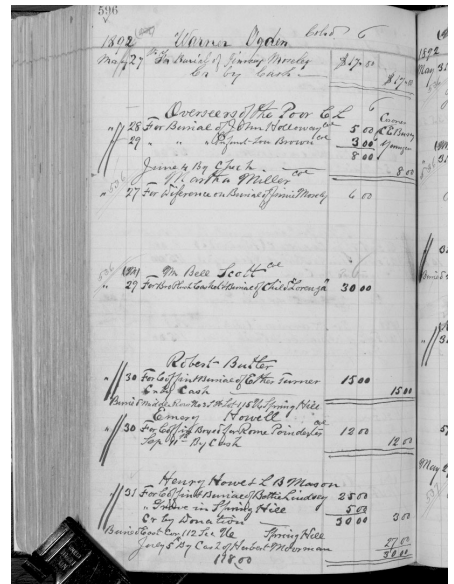 596
1892 Warner Ogden Cold 6
May 27 To Burial of Jinning Moseley $17.00
Cr by Cash $17.00
Overseers of the Poor C L 6
" 28 For Burial of John Holloway col 5 00
" 29 " " Infant Brown col 3 00
8 00
June 4 By Check 8 00
Martha Miller col
" 27 For Difference on Burial of Jinnie Mosely 6 00
596
Mr Bell Scott col
" 29 For Casket & Burial of Child Lorenza 30 00
Robert Butler
" 30 For Coffin & Burial of Esther Turner 15 00
Cr by Cash 15 00
Buried Middle Spring Hill
Emery Howell
" 30 For Coffin Boxed for Rome Poindexter col 12 00
Sep By Cash 12 00
Henry Howes L B Mason
" 31 For Coffin & Burial of Bettie Lindsey 25 00
" Grave in Spring Hill 5 00
Cr by Donation 30 00 3 00
Buried East Cor 112 Sec Spring Hill
July 5 By Cash of Hubert Moorman 27 00
30 00
178.00
1892
May 31